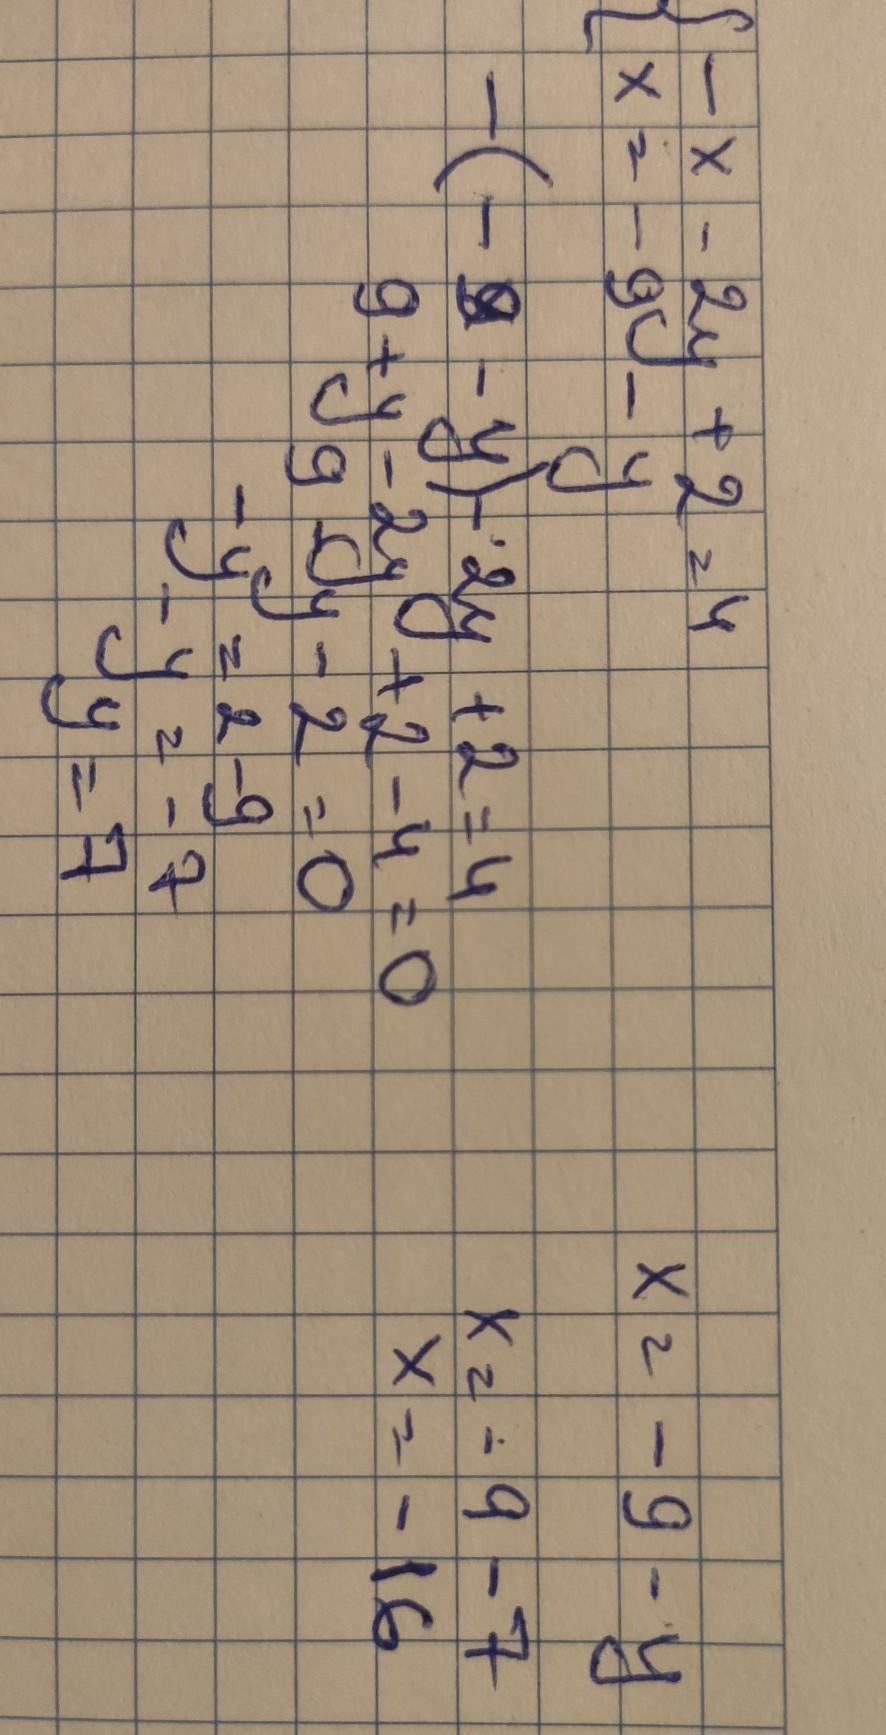 { - x - 2y + 2 = 4
{ x = - 9 - y
- ( - 9 - y ) - 2y + 2 = 4
9 + y - 2y + 2 - 4 = 0
9 - y - 2 = 0
- y = 2 - 9
- y = - 7
y = 7
x = - 9 - y
x = - 9 - 7
x = - 16